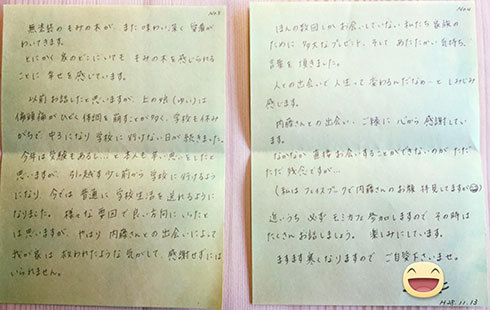 No.3
無塗装のもみの木が、また味わい深く 愛着が
わいてきます。
とにかく 家のどこにいても もみの木を感じられる
ことに 幸せを感じています。
以前お話したと思いますが、上の娘(ゆい)は
偏頭痛がひどく体調を崩すことが多く、学校も休み
がちで、中3になり 学校に行けない日が続きました。
今年は受験もあるし…と本人も辛い思いをしたと
思いますが、引っ越す少し前から 学校に行けるよう
になり、今では 普通に 学校生活を送れるように
なりました。様々な要因で良い方向にいたと
は思いますが、やはり 内藤さんとの出会いによって
我が家は 救われたような気がして、感謝せずには
いられません。
No.4
ほんの数回しかお会いしていない私たち家族の
ために 多大なプレゼント、そして あたたかい気持ち、
言葉を 頂きました。
人との出会いで人生って変わるんだなぁ…としみじみ
感じます。
内藤さんとの出会い、ご縁に 心から感謝してい
ます。
なかなか直接お会いすることができないのが ただ
ただ 残念ですが…
(私は フェイスブックで内藤さんのお顔 拝見してますが)
近いうち 必ず モミカフェ参加しますので その時は
たくさんお話しましょう。楽しみにしています。
ますます寒くなりますので ご自愛下さいませ。
H28.11.13